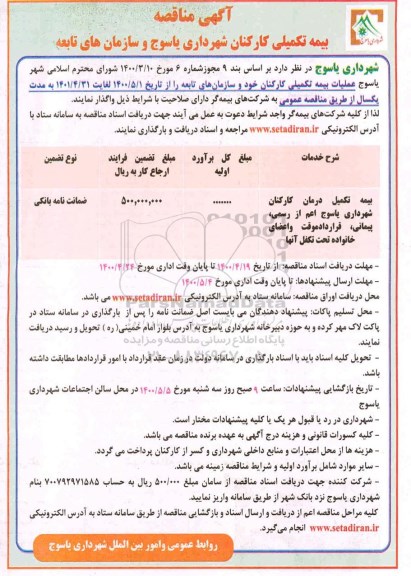 آگهی مناقصه
بیمه تکمیلی کارکنان شهرداری یاسوج و سازمان های تابعه
شهرداری یاسوج در نظر دارد بر اساس بند ۹ مجوزشماره ۶ مورخ ۱۴۰۰/۳/۱۰ شورای محترم اسلامی شهر
یاسوج عملیات بیمه تکمیلی کارکنان خود و سازمان‌های تابعه را از تاریخ ۱۴۰۰/۵/۱ لغایت ۱۴۰۱/۴/۳۱ به مدت
یکسال از طریق مناقصه عمومی به شرکت‌های بیمه‌گر دارای صلاحیت با شرایط ذیل واگذار نمایند.
لذا از کلیه شرکت‌های بیمه‌گر واجد شرایط دعوت به عمل می آیند جهت دریافت اسناد مناقصه به سامانه ستاد با
آدرس الکترونیکی www.setadiran.ir مراجعه و اسناد دریافت و بارگذاری نمایند.
شرح خدمات مبلغ کل برآورد اولیه مبلغ تضمین فرایند ارجاع کار به ریال نوع تضمین
بیمه تکمیل درمان کارکنان شهرداری یاسوج اعم از رسمی، پیمانی، قراردادموقت واعضای خانواده تحت تکفل آنها ....... ۵۰۰,۰۰۰,۰۰۰ ضمانت نامه بانکی
- مهلت دریافت اسناد مناقصه: از تاریخ ۱۴۰۰/۴/۱۹ تا پایان وقت اداری مورخ ۱۴۰۰/۴/۲۴
- مهلت ارسال پیشنهادها: تا پایان وقت اداری مورخ ۱۴۰۰/۵/۴
محل دریافت اوراق مناقصه: سامانه ستاد به آدرس الکترونیکی www.setadiran.ir می باشد.
- محل تسلیم پاکات: پیشنهاد دهندگان می بایست اصل ضمانت نامه را پس از بارگذاری در سامانه ستاد در
پاکت لاک مهر کرده و به حوزه دبیرخانه شهرداری یاسوج به آدرس بلوار امام خمینی(ره) تحویل و رسید دریافت
نمایند.
- تحویل کلیه اسناد باید با اسناد بارگذاری در سامانه دولت در زمان عقد قرارداد با امور قراردادها مطابقت داشته
باشد.
- تاریخ بازگشایی پیشنهادات: ساعت ۹ صبح روز سه شنبه مورخ ۱۴۰۰/۵/۵ در محل سالن اجتماعات شهرداری
یاسوج
- شهرداری در رد یا قبول هر یک یا کلیه پیشنهادات مختار است.
- کلیه کسورات قانونی و هزینه درج آگهی به عهده برنده مناقصه می باشد.
- هزینه ها از محل اعتبارات و منابع داخلی شهرداری و کسر از کارکنان پرداخت می گردد.
- سایر موارد شامل برآورد اولیه و شرایط مناقصه زمینه می باشد.
- شرکت کننده جهت دریافت اسناد مناقصه از سامان مبلغ ۵۰۰/۰۰۰ ریال به حساب ۷۰۰۷۹۲۹۷۱۵۸۵ بنام
شهرداری یاسوج نزد بانک شهر از طریق سامانه واریز نمایید.
کلیه مراحل مناقصه اعم از دریافت و ارسال اسناد و بازگشایی مناقصه از طریق سامانه ستاد به آدرس الکترونیکی
www.setadiran.ir انجام می‌گیرد.
روابط عمومی وامور بین الملل شهرداری یاسوج